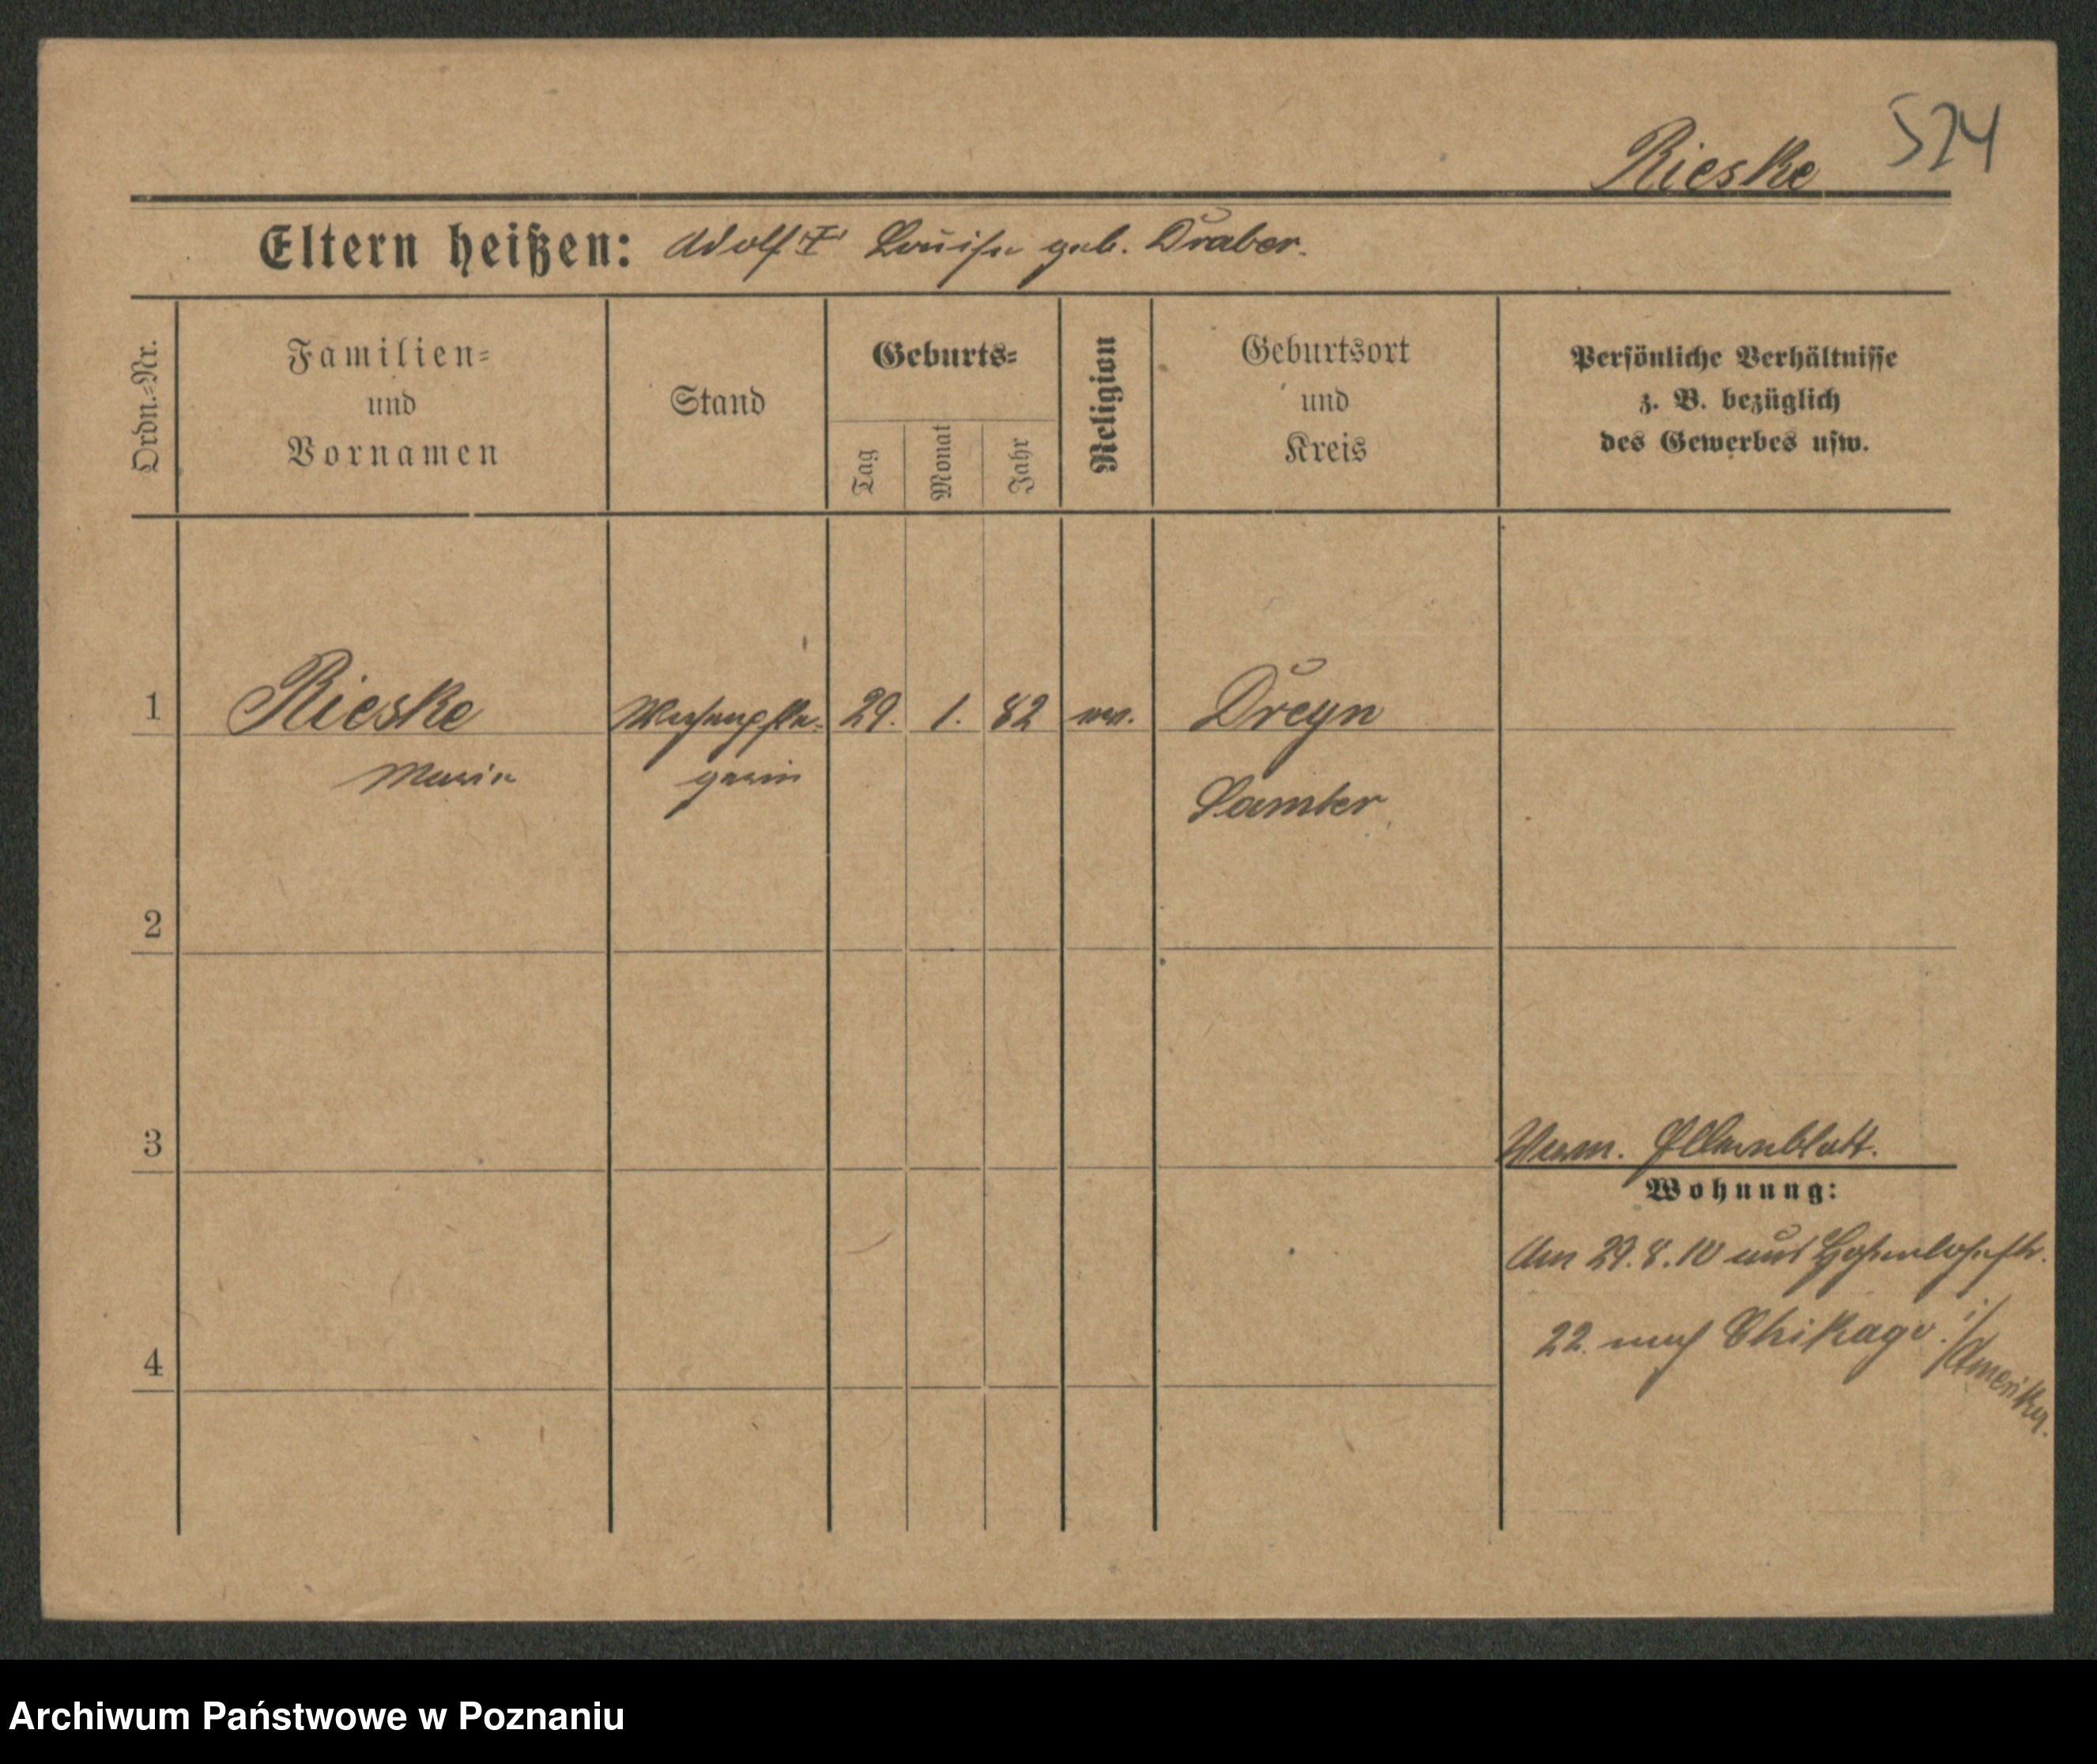 524
Rieske
Eltern heißen: Adolf + Louise geb. Draber.
Ordn.=Nr.
Familien=
und
Vornamen
Stand
Geburts=
Tag
Monat
Jahr
Religion
Geburtsort
und
Kreis
Persönliche Verhältnisse
z. B. bezüglich
des Gewerbes usw.
1 Rieske 29. 1. 82
Marie gerin
Samter
2
3
Wohnung:
Am 29.8.10 aus Hohenlohestr.
22. nach Chikago i/Amerika.
4
Archiwum Państwowe w Poznaniu